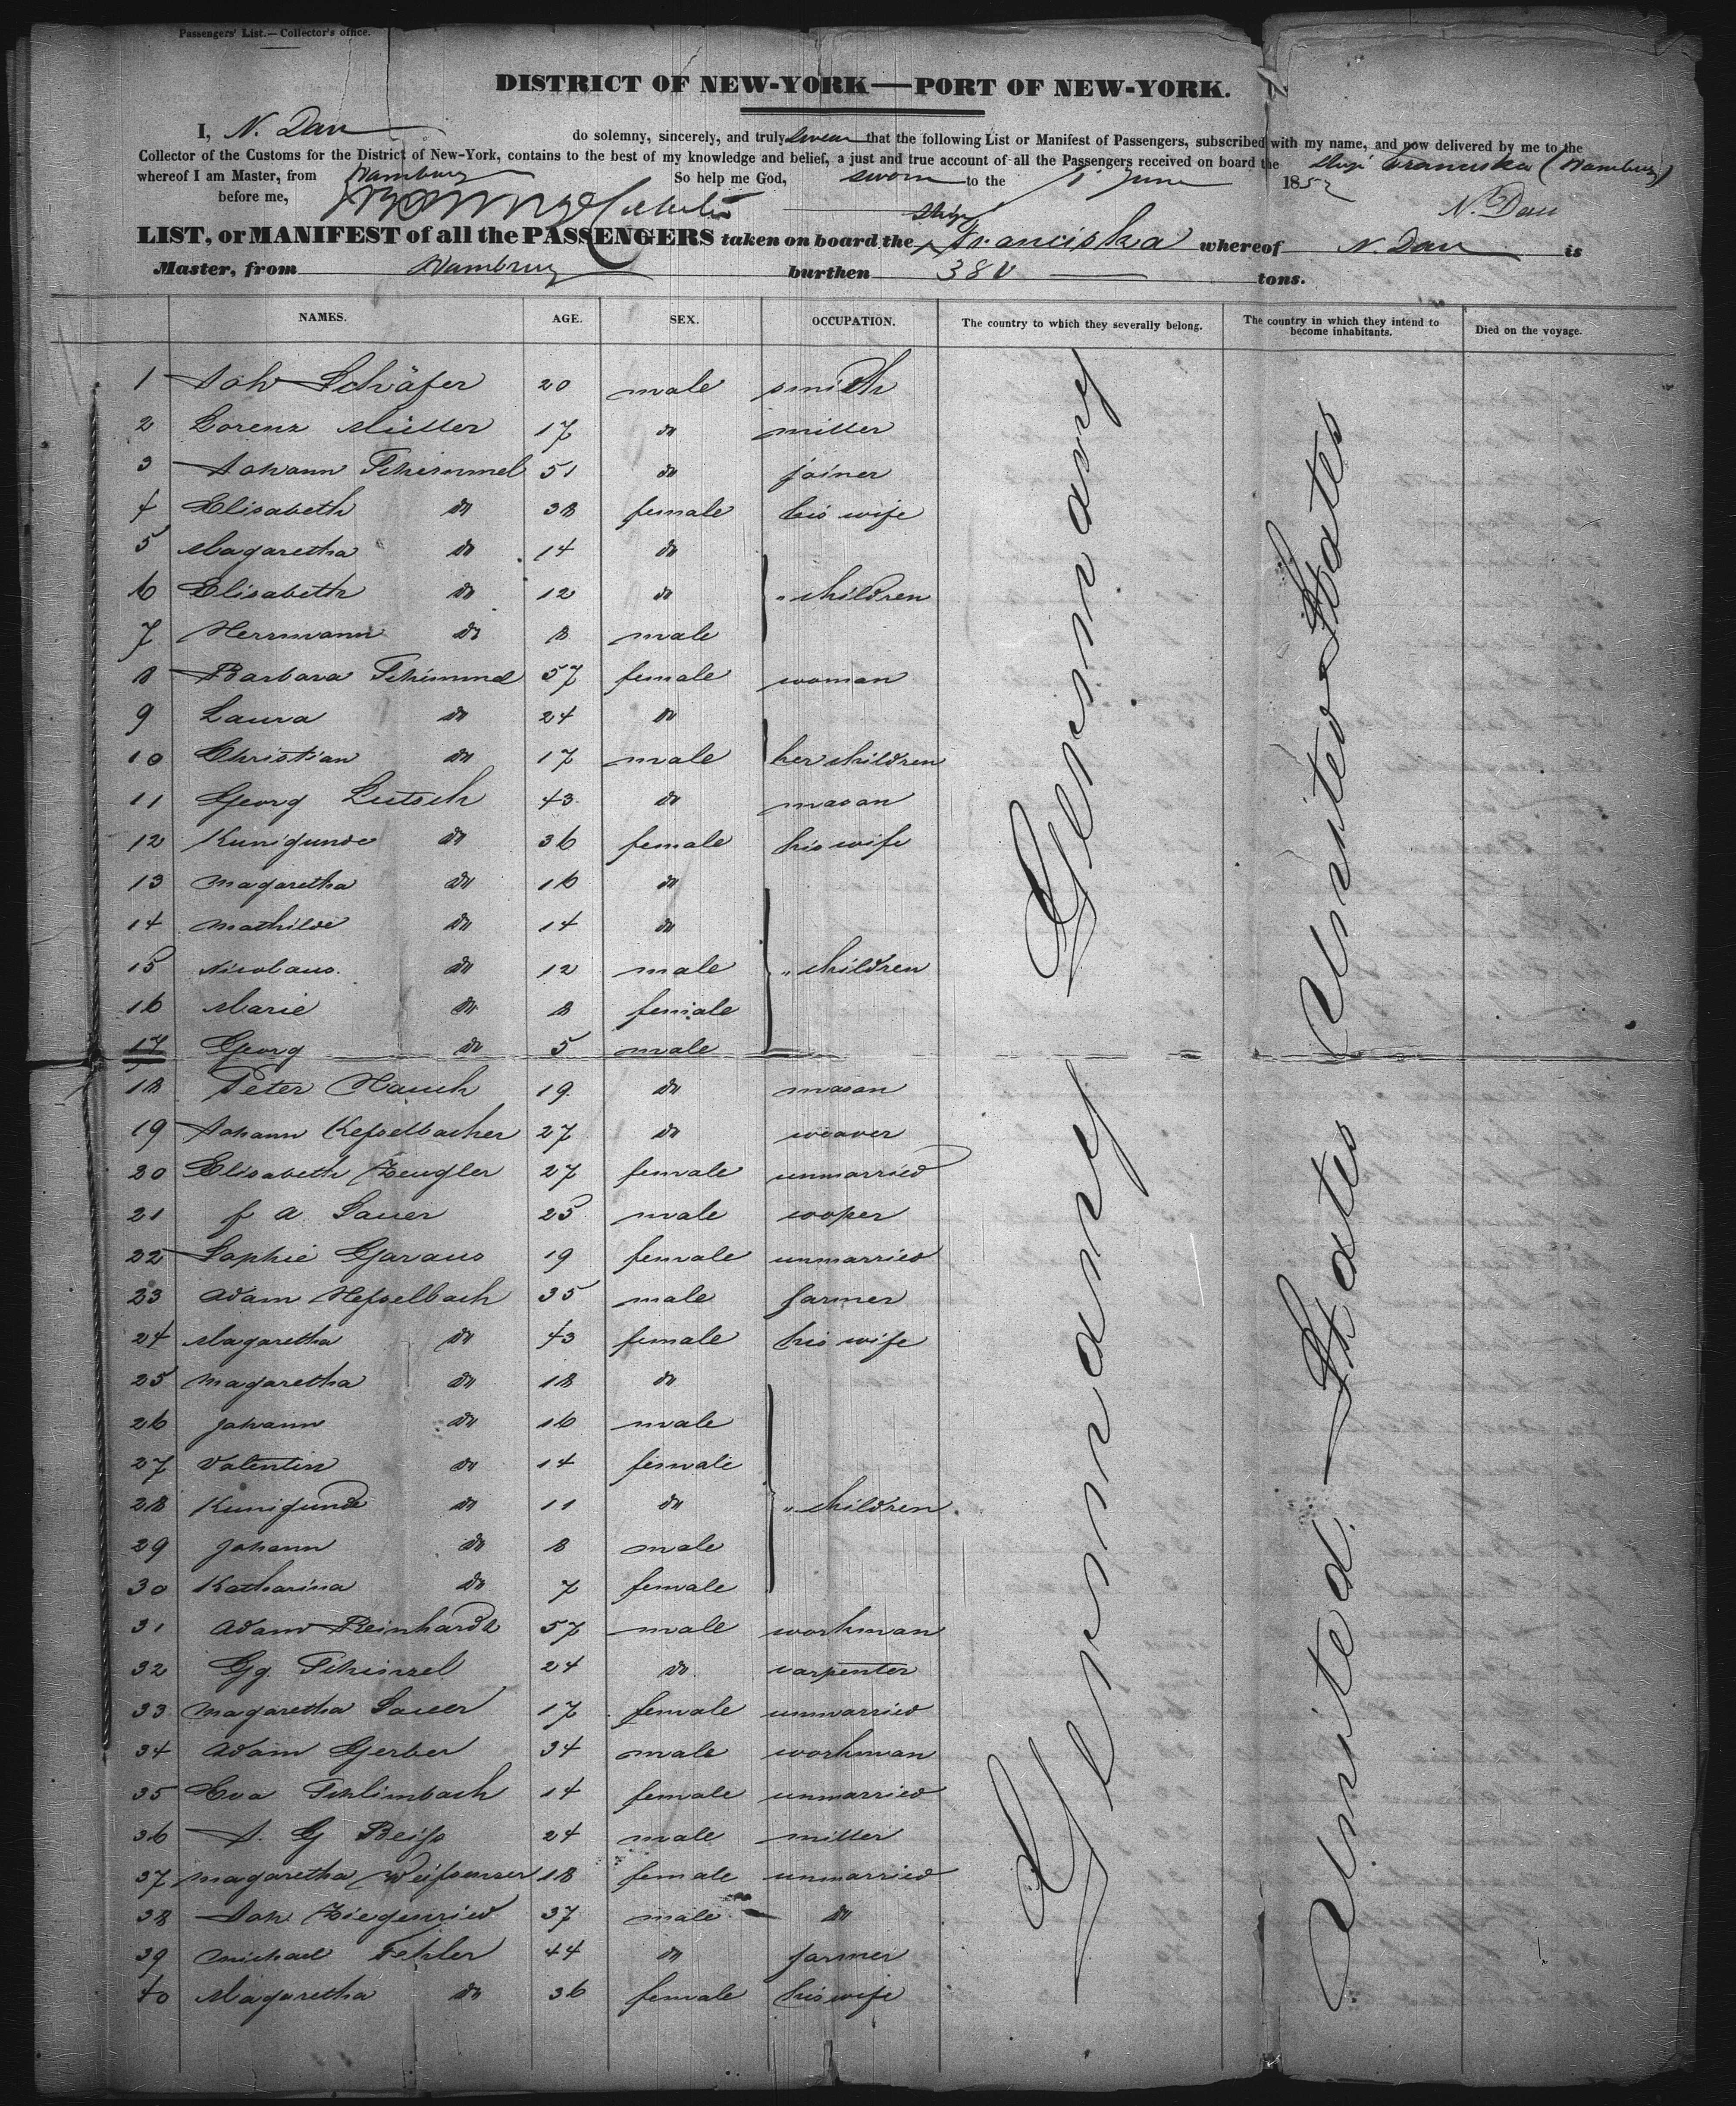 Passengers' List.—Collector's office.
DISTRICT OF NEW-YORK—PORT OF NEW-YORK.
I, N. Dau do solemny, sincerely, and truly swear that the following List or Manifest of Passengers, subscribed with my name, and now delivered by me to the
Collector of the Customs for the District of New-York, contains to the best of my knowledge and belief, a just and true account of all the Passengers received on board the Ship Franciska (Hamburg)
whereof I am Master, from Hamburg So help me God, sworn to the 1 June 1852
before me, N. Dau
LIST, or MANIFEST of all the PASSENGERS taken on board the Ship Franciska whereof N. Dau is
Master, from Hamburg burthen 380 tons.
NAMES. AGE. SEX. OCCUPATION. The country to which they severally belong. The country in which they intend to become inhabitants. Died on the voyage.
1 Joh Schäfer 20 male smith
2 Lorenz Müller 17 do miller
3 Johann Schimmel 51 do joiner
4 Elisabeth do 38 female his wife
5 Magaretha do 14 do
6 Elisabeth do 12 do " children
7 Herrmann do 8 male
8 Barbara Schimmel 57 female woman
9 Laura do 24 do
10 Christian do 17 male her children
11 Georg Lutsch 43 do mason
12 Kunigunde do 36 female his wife
13 Magaretha do 16 do
14 Mathilde do 14 do
15 Nicolaus. do 12 male " children
16 Marie do 8 female
17 Georg do 5 male
18 Peter Hauck 19 do mason
19 Johann Kesselbacher 27 do weaver
20 Elisabeth Zeugler 27 female unmarried
21 f a Sauer 25 male cooper
22 Sophie Garaus 19 female unmarried
23 Adam Hesselbach 35 male farmer
24 Magaretha do 43 female his wife
25 Magaretha do 18 do
26 Johann do 16 male
27 Valentin do 14 female
28 Kunigunde do 11 do " children
29 Johann do 8 male
30 Katharina do 7 female
31 Adam Reinhardt 57 male workman
32 Gg. Schinzel 24 do carpenter
33 Magaretha Sauer 17 female unmarried
34 Adam Gerber 34 male workman
35 Eva Schlimbach 14 female unmarried
36 J. G Beiss 24 male miller
37 Magaretha 18 female unmarried
38 Joh Ziegenried 37 male do
39 Michael Fehler 44 do farmer
40 Magaretha do 36 female his wife
Germany
Germany
United States
United States